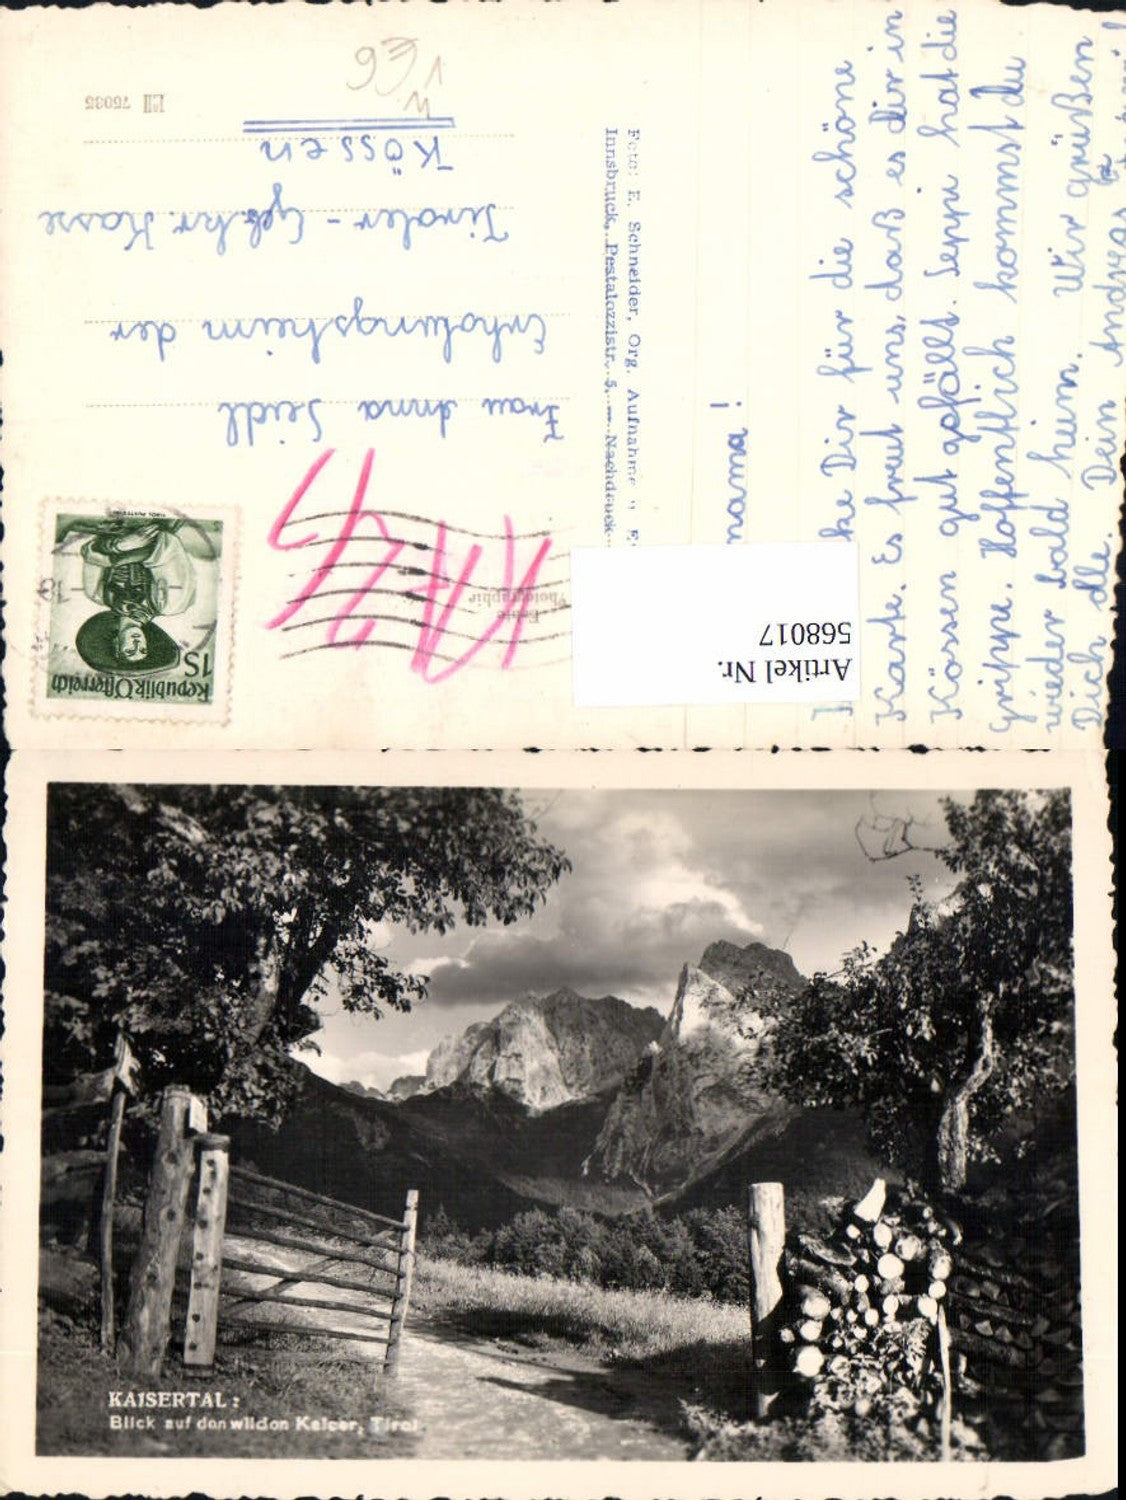 Republik Österreich
1S
Frau Anna Seidl
Erholungsheim der
Tiroler-Geb.kr. Kasse
Kössen
75035
Foto: E. Schneider, Org. Aufnahme
Innsbruck, Pestalozzistr. 5. — Nachdruck
Echte
Photographie
Artikel Nr.
568017
mama!
ke Dir für die schöne
Karte. Es freut uns, daß es dir in
Kössen gut gefällt. Seppi hat die
Grippe. Hoffentlich kommst du
wieder bald heim. Wir grüßen
Dich alle. Dein Andreas
KAISERTAL:
Blick auf den wilden Kaiser, Tirol